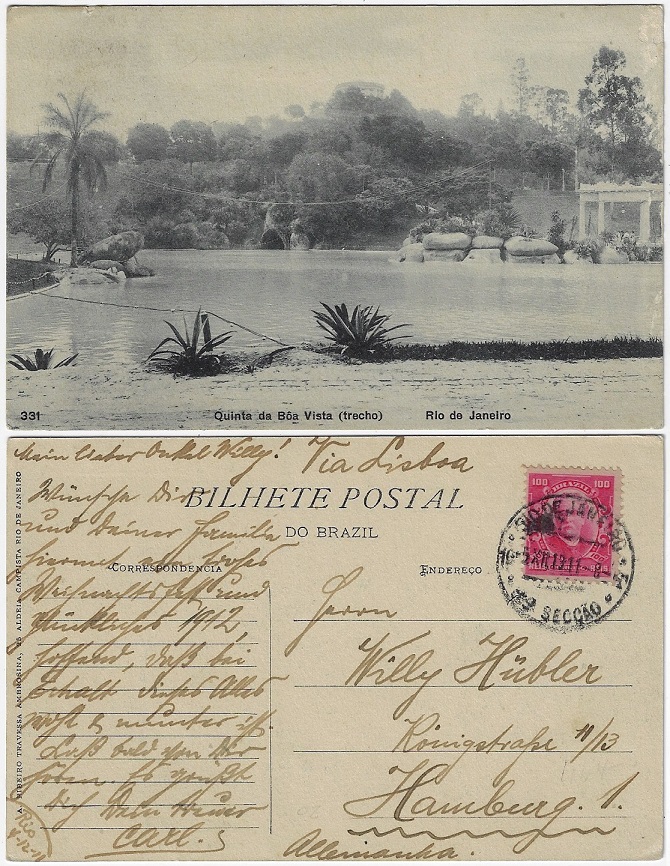 331 Quinta da Bôa Vista (trecho) Rio de Janeiro
Mein lieber Onkel Willy! Via Lisboa
BILHETE POSTAL
DO BRAZIL
CORRESPONDENCIA
ENDEREÇO
Wünsche Dir
und Deiner Familie
hiermit ein frohes
Weihnachtsfest und
glückliches 1912,
hoffend, daß bei
Erhalt dieses Alles
wohl & munter ist.
Laß bald von Dir
hören. Es grüßt
Dich Dein treuer
Carl.
Rio
Herrn
Willy Hübler
Königstraße 11/13
Hamburg. 1.
Allemanha.
A. RIBEIRO TRAVESSA AMBROSINA, 25 ALDEIA CAMPISTA RIO DE JANEIRO
100 100
BRAZIL
RIO DE JANEIRO
SECÇÃO